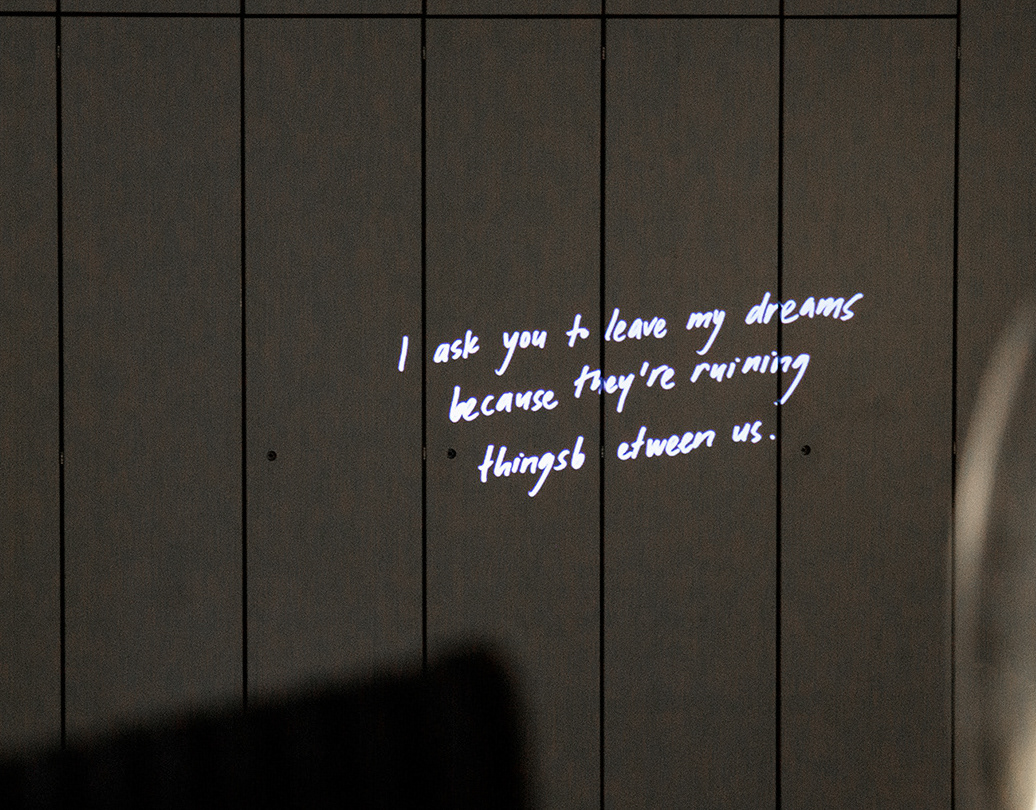 I ask you to leave my dreams
because they're ruining
thingsb etween us.